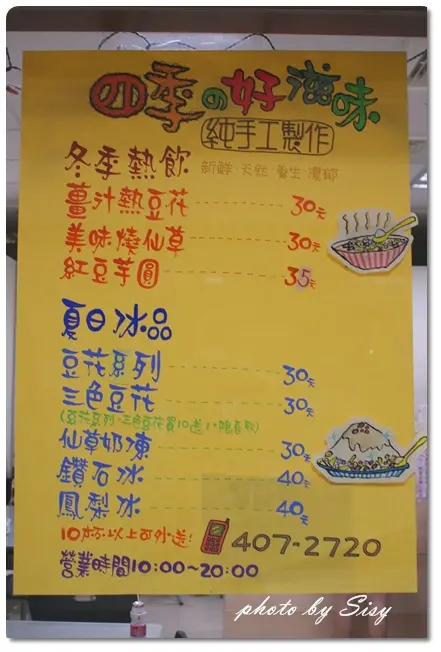 四季の好滋味
純手工製作
冬季熱飲 新鮮·天然·養生·濃郁
薑汁熱豆花 30元
美味燒仙草 30元
紅豆芋圓 35元
夏日冰品
豆花系列 30元
三色豆花 30元
(豆花系列、三色豆花買10送1,喝喜歡)
仙草奶凍 30元
鑽石冰 40元
鳳梨冰 40元
10杯以上可外送! 407-2720
營業時間10:00~20:00
photo by Sisy